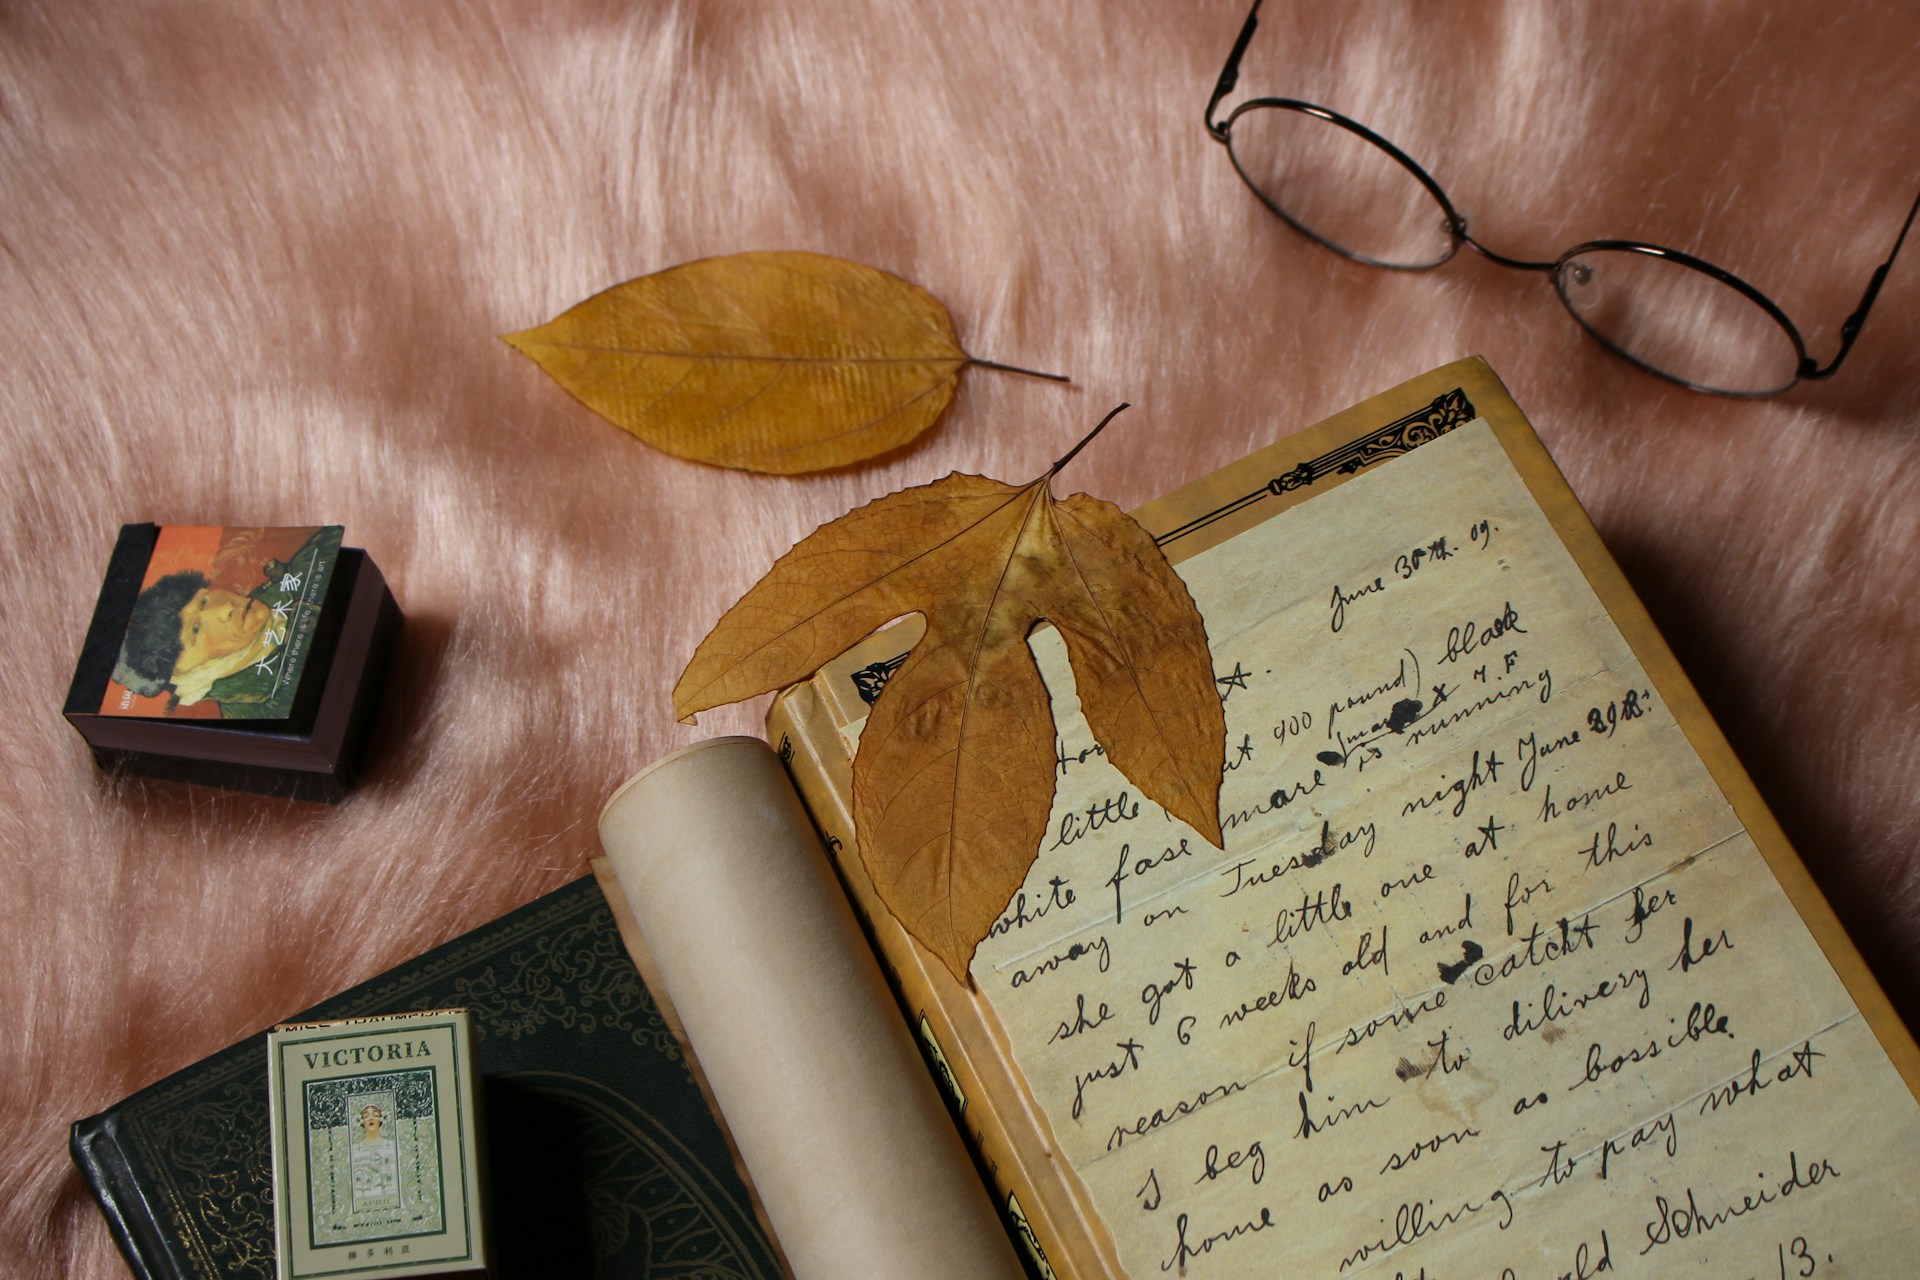 June 30th. 09.
400 pound) black
little
(mark x 7.F
white fase mare is running
away on Tuesday night June 29th.
she got a little one at home
just 6 weeks old and for this
reason if some catcht her
I beg him to dilivery her
home as soon as bossible.
willing to pay what
Schneider
13.
大艺术家
Where there is life, there is art
VICTORIA
APRIL
維多利亞